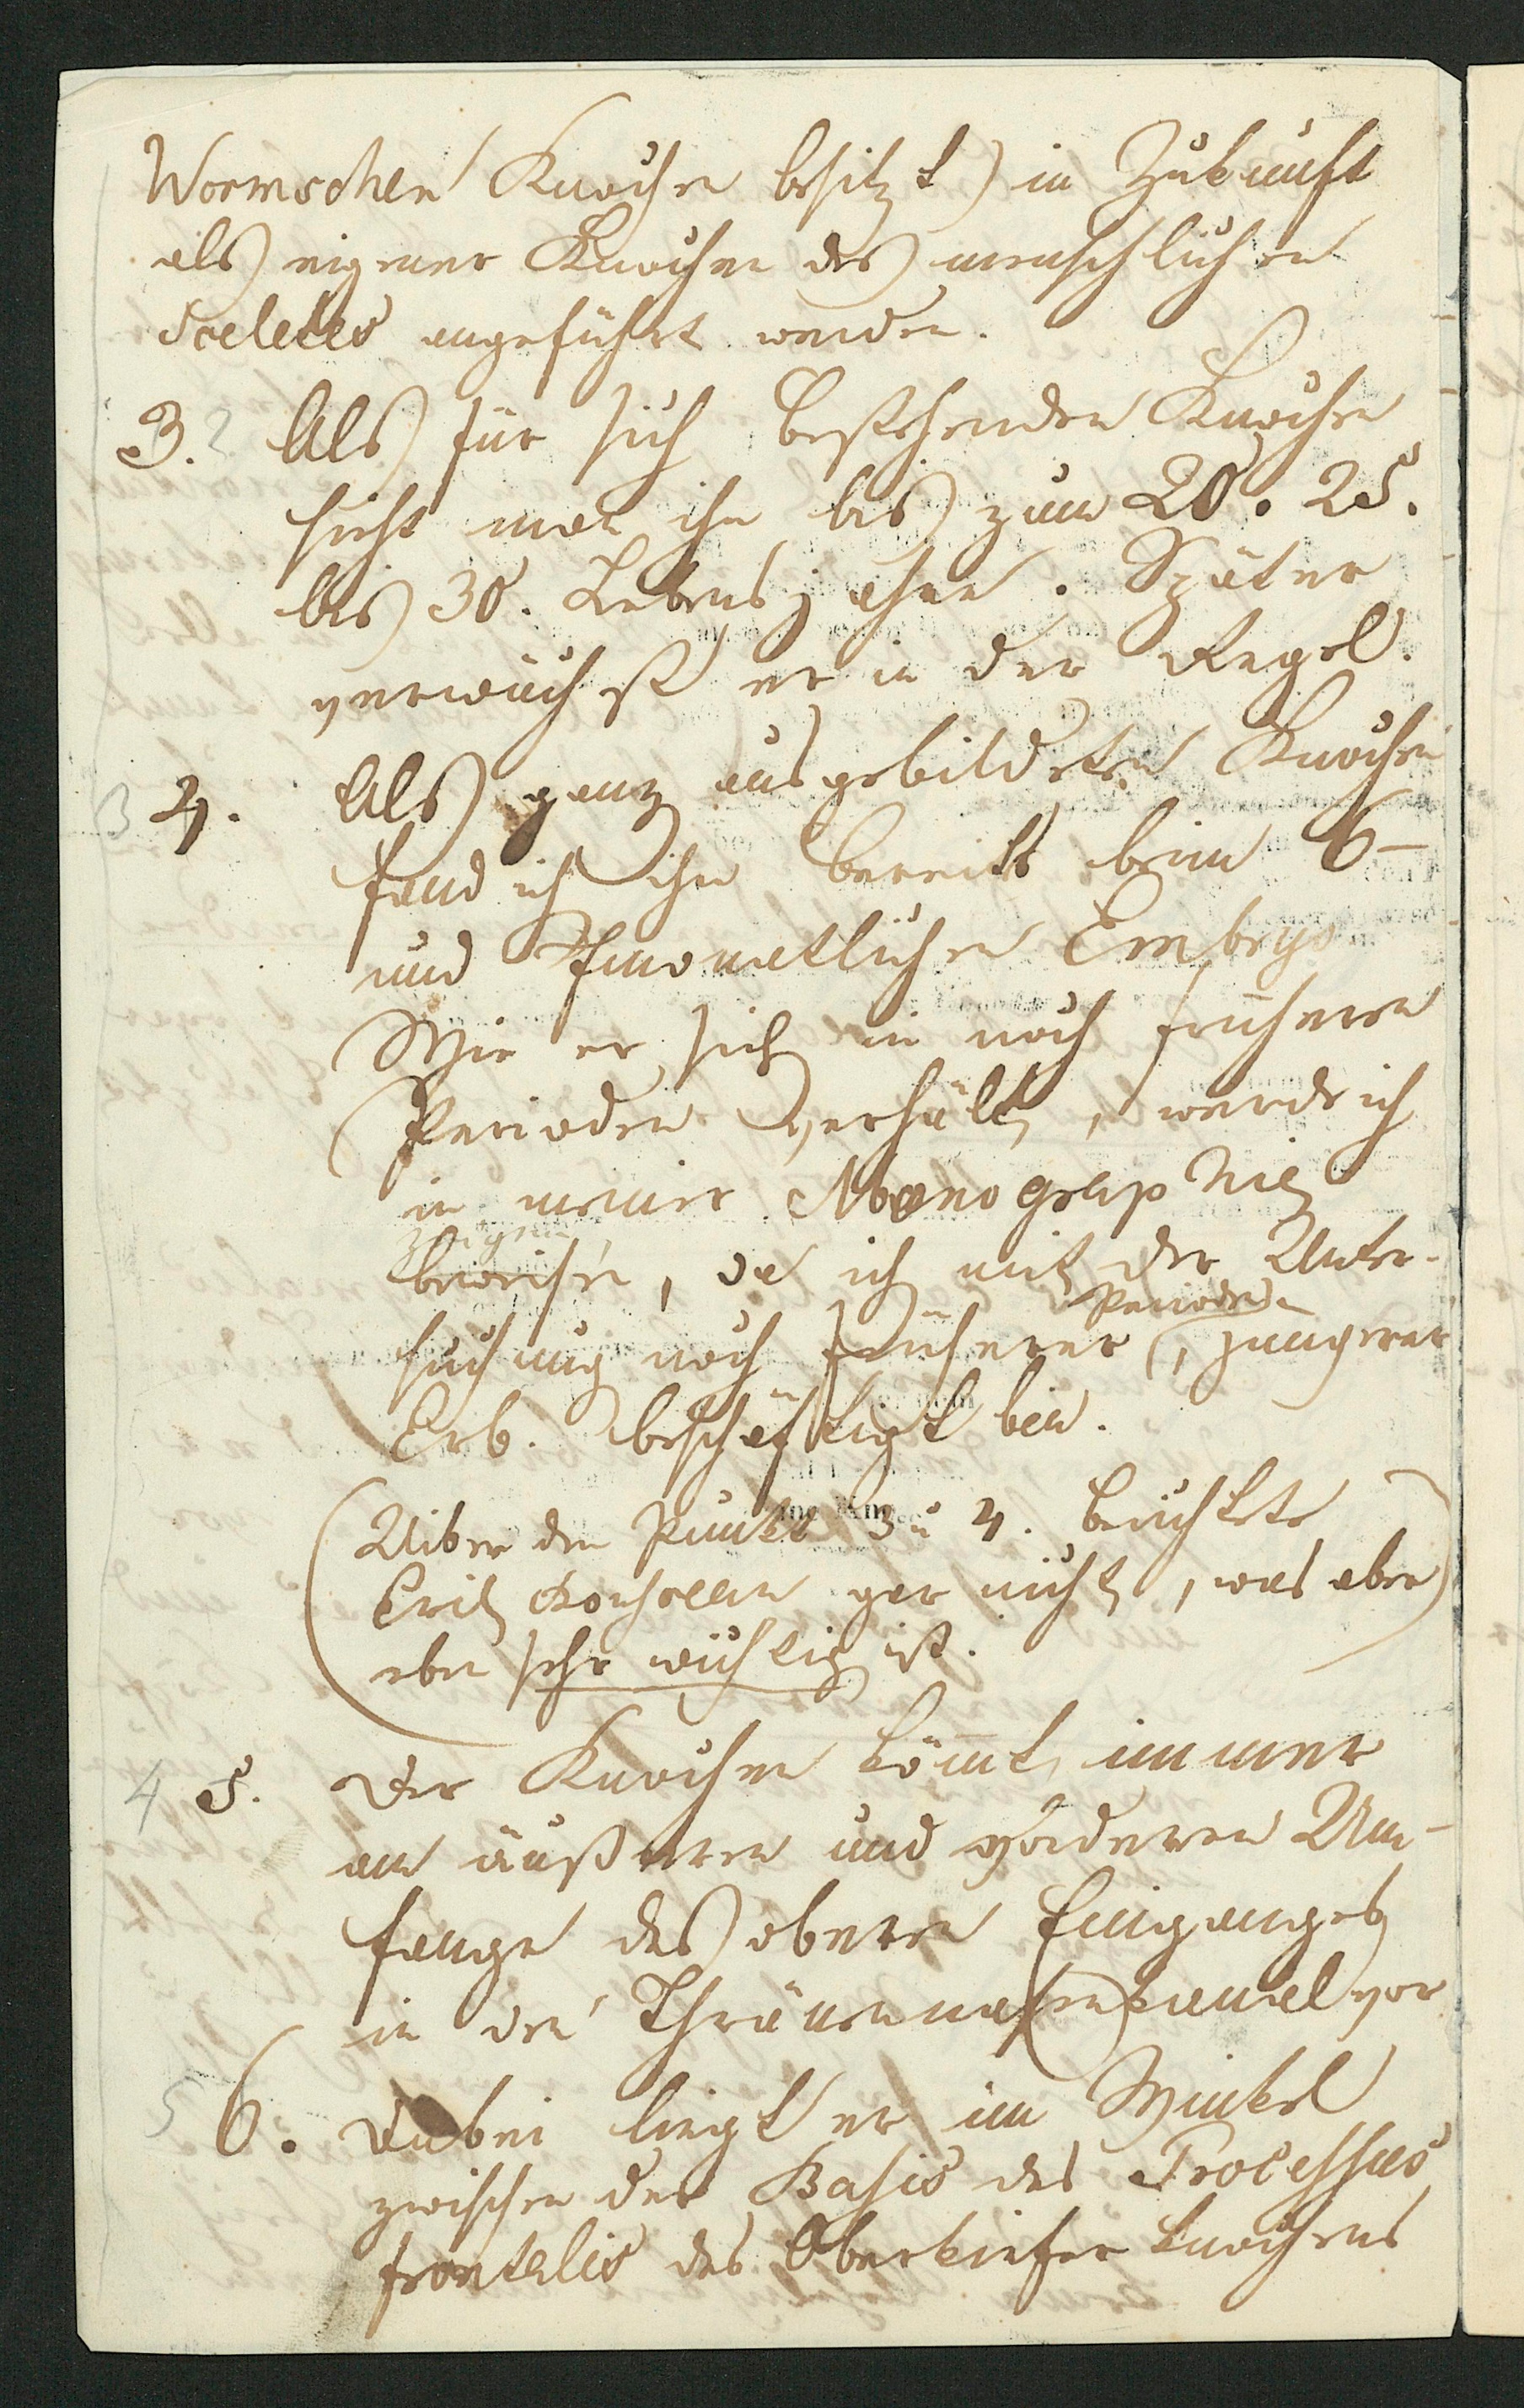 Wormschen Knochen besitzt) in Zukunft
als eigener Knochen des menschlichen
Sceletes angeführt werden.
3. 2 Als für sich bestehenden Knochen
sieht man ihn bis zum 20. 25.
bis 30. Lebensjahre. Später
verwächst er in der Regel.
3 4. Als ganz ausgebildeten Knochen
fand ich ihn bereits beim 6-
und 7monatlichen Embryo
Wie er sich in noch früheren
Perioden verhält, werde ich
in meiner Monographie
zeigen
beweisen, da ich mit der Unter-
Perioden
suchung noch früherer, jüngerer
Erb. beschäftigt bin.
(Uiber den Punkt 3 u 4. berichtete
gar nicht, was aber)
eben sehr wichtig ist.
4 5. Der Knochen kömt immer
am äußeren und vorderen Um-
fange des oberen Einganges
in den Thränennasenkanal vor
5 6. Dabei liegt er im Winkel
zwischen der Basis des Processus
frontalis des Oberkieferknochens